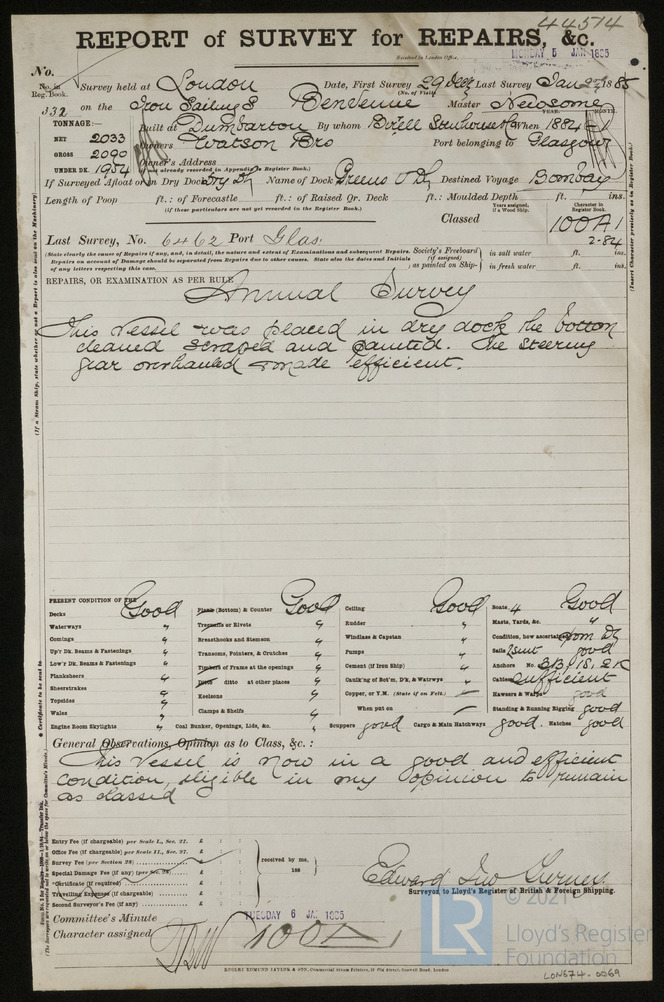 44574
REPORT of SURVEY for REPAIRS, &c.
Received in London Office,
MONDAY 5 JAN 1885
No.
No. in Reg. Book.
332
Survey held at London Date, First Survey 29 Dec Last Survey Jan 2nd 1885
(No. of Visits)
on the Iron Sailing S Benvenue Master Newsome
TONNAGE:—
NET 2033
GROSS 2090
UNDER DK. 1954
Built at Dumbarton By whom When 1884
YEAR. MONTH.
Owners Watson Bro Port belonging to Glasgow
Owner's Address
(if not already recorded in Appendix to Register Book.)
If Surveyed Afloat or in Dry Dock Dry Dk Name of Dock Greens D Dk Destined Voyage Bombay
Length of Poop ft.: of Forecastle ft.: of Raised Qr. Deck ft.: Moulded Depth ft. ins.
(if these particulars are not yet recorded in the Register Book.)
Years assigned, if a Wood Ship.
Character in Register Book.
Classed 100A1
2-84
Last Survey, No. 6462 Port Glas:
(State clearly the cause of Repairs if any, and, in detail, the nature and extent of Examinations and subsequent Repairs. Repairs on account of Damage should be separated from Repairs due to other causes. State also the dates and Initials of any letters respecting this case.
Society's Freeboard (if assigned) as painted on Ship- in salt water ft. ins.
in fresh water ft. ins.
REPAIRS, OR EXAMINATION AS PER RULE
Annual Survey
This Vessel was placed in dry dock the bottom
cleaned scraped and painted. The steering
gear overhauled & made efficient.
PRESENT CONDITION OF THE
Decks Good
Waterways "
Comings "
Up'r Dk. Beams & Fastenings "
Low'r Dk. Beams & Fastenings "
Planksheers "
Sheerstrakes "
Topsides "
Wales "
Engine Room Skylights "
Plank (Bottom) & Counter Good
Treenails or Rivets "
Breasthooks and Stemson "
Transoms, Pointers, & Crutches "
Timbers of Frame at the openings "
Ditto ditto at other places "
Keelsons "
Clamps & Shelfs "
Coal Bunker, Openings, Lids, &c. "
Ceiling Good
Rudder "
Windlass & Capstan "
Pumps "
Cement (if Iron Ship) "
Caulk'ng of Bot'm, D'k, & Watrwys "
Copper, or Y.M. (State if on Felt.) —
When put on —
Scuppers good Cargo & Main Hatchways good.
Boats 4 Good
Masts, Yards, &c. "
Condition, how ascertained from Dk
Sails 2 suit good
Anchors No. 3B. 1S. 2K
Cables sufficient
Hawsers & Warps good
Standing & Running Rigging good
Hatches good
General Observations, Opinion as to Class, &c. :
This Vessel is now in a good and efficient
condition, eligible in my opinion to remain
as classed
Entry Fee (if chargeable) per Scale I., Sec. 27. £ : :
Office Fee (if chargeable) per Scale II., Sec. 27. £ : :
Survey Fee (per Section 28) £ : :
Special Damage Fee (if any) (per Sec. 28) £ : :
*Certificate (if required) £ : :
Travelling Expenses (if chargeable) £ : :
Second Surveyor's Fee (if any) £ : :
received by me,
188
Edward Jno Gurney
Surveyor to Lloyd's Register of British & Foreign Shipping.
Committee's Minute TUESDAY 6 JAN 1885
Character assigned 100A1
ROBERT EDMUND TAYLOR & SON, Commercial Steam Printers, 19 Old Street, Goswell Road, London
(If a Steam Ship, state whether or not a Report is also sent on the Machinery)
(Insert Character precisely as in Register Book.)
* Certificate to be sent to
LR
© 2021
Lloyd's Register
Foundation
LON574-0069